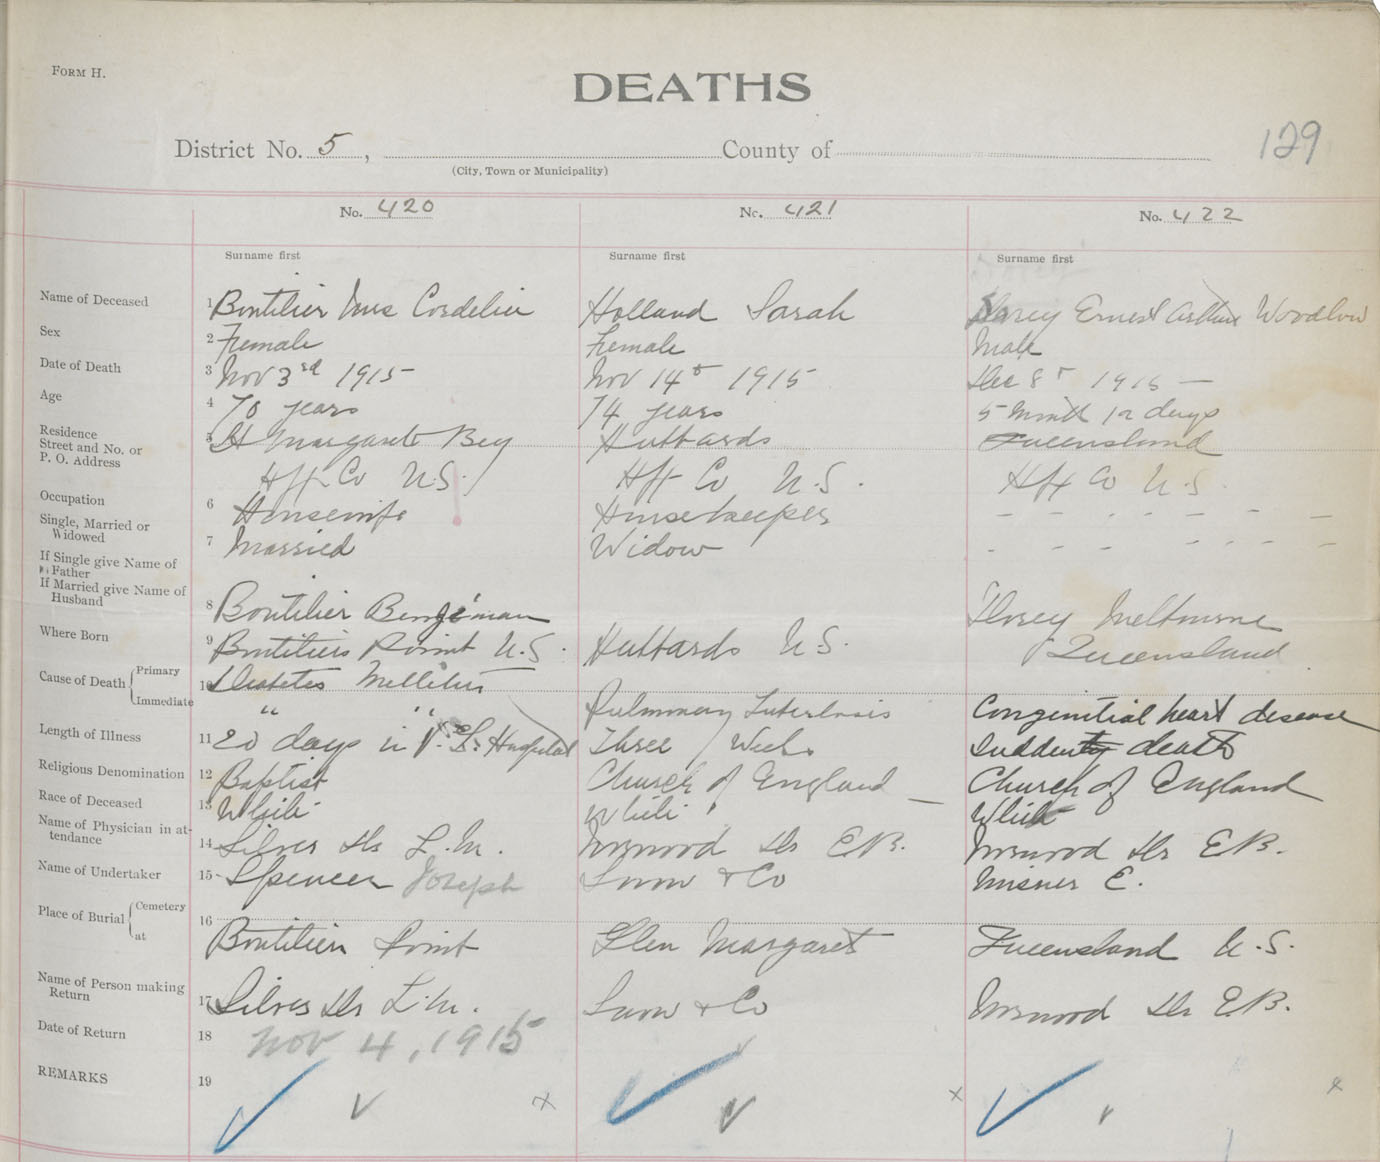 FORM H.
DEATHS
129
District No. 5, County of
(City, Town or Municipality)
No. 420 No. 421 No. 422
Surname first Surname first Surname first
Name of Deceased 1 Boutilier Mrs Cordelier Holland Sarah Ernest Arthur Woodlow
Sex 2 Female Female Male
Date of Death 3 Nov 3rd 1915 Nov 14th 1915 Dec 8th 1915 —
Age 4 70 years 74 years 5 Month 12 days
Residence Street and No. or P. O. Address 5 St Margarets Bay Hubbards Queensland
Hfx Co N.S. Hfx Co N.S. Hfx Co N.S.
Occupation 6 Housewife Housekeeper - - - - - - -
Single, Married or Widowed 7 Married Widow - - - - - - -
If Single give Name of Father
If Married give Name of Husband 8 Boutilier Benjiman Melbourne
Where Born 9 Boutiliers Point N.S. Hubbards N.S. Queensland
Cause of Death { Primary 10 Diabetes Mellitus
Immediate " " Pulmonary Tuberlosis Congenitial heart desease
Length of Illness 11 20 days in V. G. Hospital Three Weeks Sudden death
Religious Denomination 12 Baptist Church of England — Church of England
Race of Deceased 13 White White White
Name of Physician in attendance 14 Silver Dr L.M. Norwood Dr E.B. Norwood Dr E.B.
Name of Undertaker 15 Spencer Joseph Snow & Co Misner E.
Place of Burial { Cemetery at 16 Boutilier Point Glen Margaret Queensland N.S.
Name of Person making Return 17 Silver Dr L.M. Snow & Co Norwood Dr E.B.
Date of Return 18 Nov 4, 1915
REMARKS 19